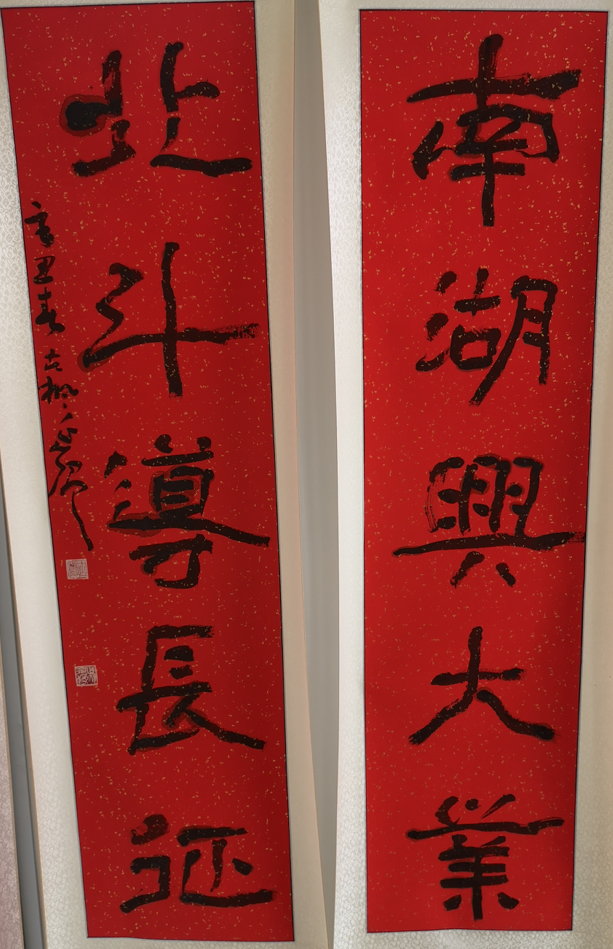 南湖興大業
北斗導長征
辛丑春古柳